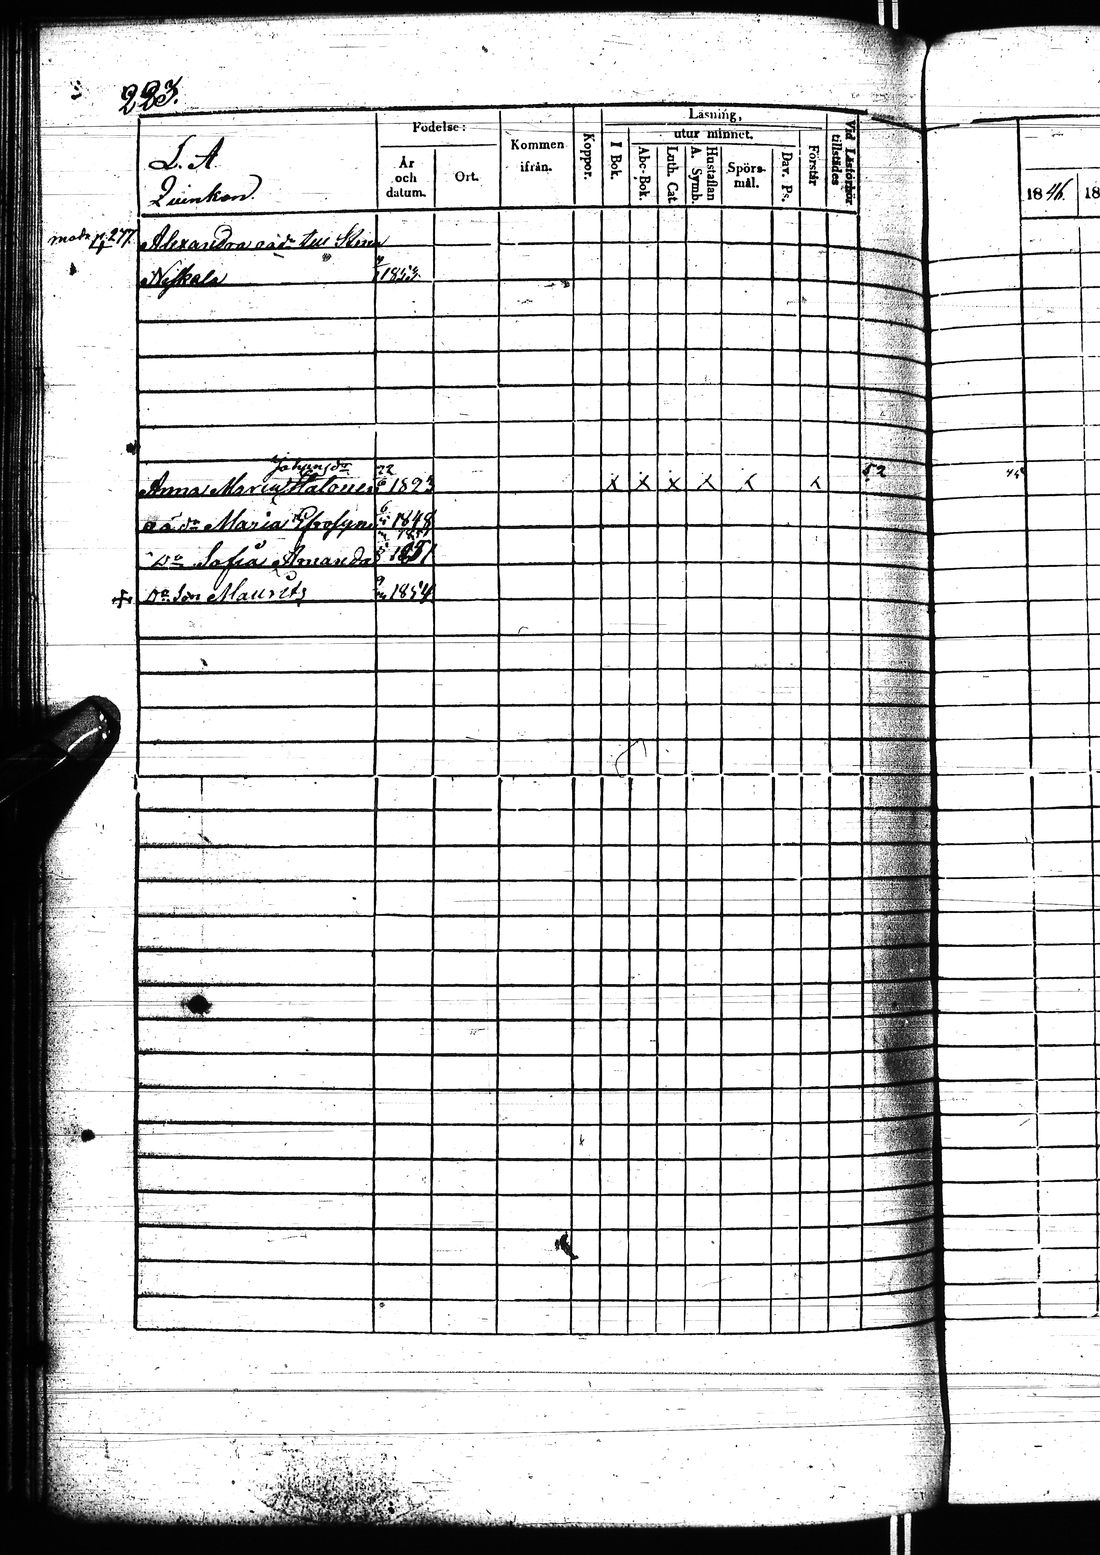 223.
L. A.
Qvinkön.
Födelse:
År och datum.
Ort.
Kommen ifrån.
Koppor.
Läsning,
utur minnet.
I Bok.
Abc-Bok.
Luth. Cat
Hustaflan A. Symb.
Spörsmål.
Dav. Ps.
Förstår
Vid Läsförhör tillstädes
1846.
18
277. Alexandra oäd
Niskala 1853
Johansdr
Anna Maria Hatonen 22 1823 x x x x x x 52
oä dr Maria 6 1848
Do Sofia Amanda 1851
Do Son Maurits 9 1854